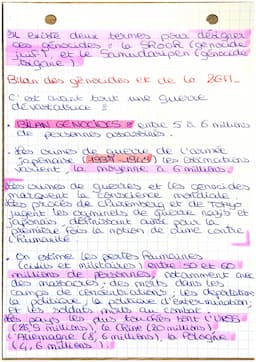 Il existe deux termes pour désigner
des génocides : la SHOAH (génocide
juif) et le Samudaripen (génocide
tsigane).
Bilan des génocides et de la 2GM_
C'est avant tout une guerre
dévastatrice :
• BILAN GENOCIDES : entre 5 à 6 millions
de personnes assassinées.
• Les crimes de guerre de l'armée
japonaise (1937-1945) les estimations
varient, la moyenne à 6 millions
Les crimes de guerres et les génocides
marquent la conscience mondiale.
Les procès de Nuremberg et de Tokyo
jugent les criminels de guerre nazis et
japonais, définissant ainsi pour la
première fois la notion de crime contre
l'humanité
• On estime les pertes humaines
(civils et militaires) entre 50 et 60
millions de personnes, notamment avec
des massacres, des morts dans les
camps de concentrations, les déportations
la politique d'extermination,
et les soldats morts au combat.
Les pays les plus touchés sont l'URSS
(26,5 millions), la Chine (20 millions)
l'Allemagne (8,6 millions), la Pologne
(4,6 millions).